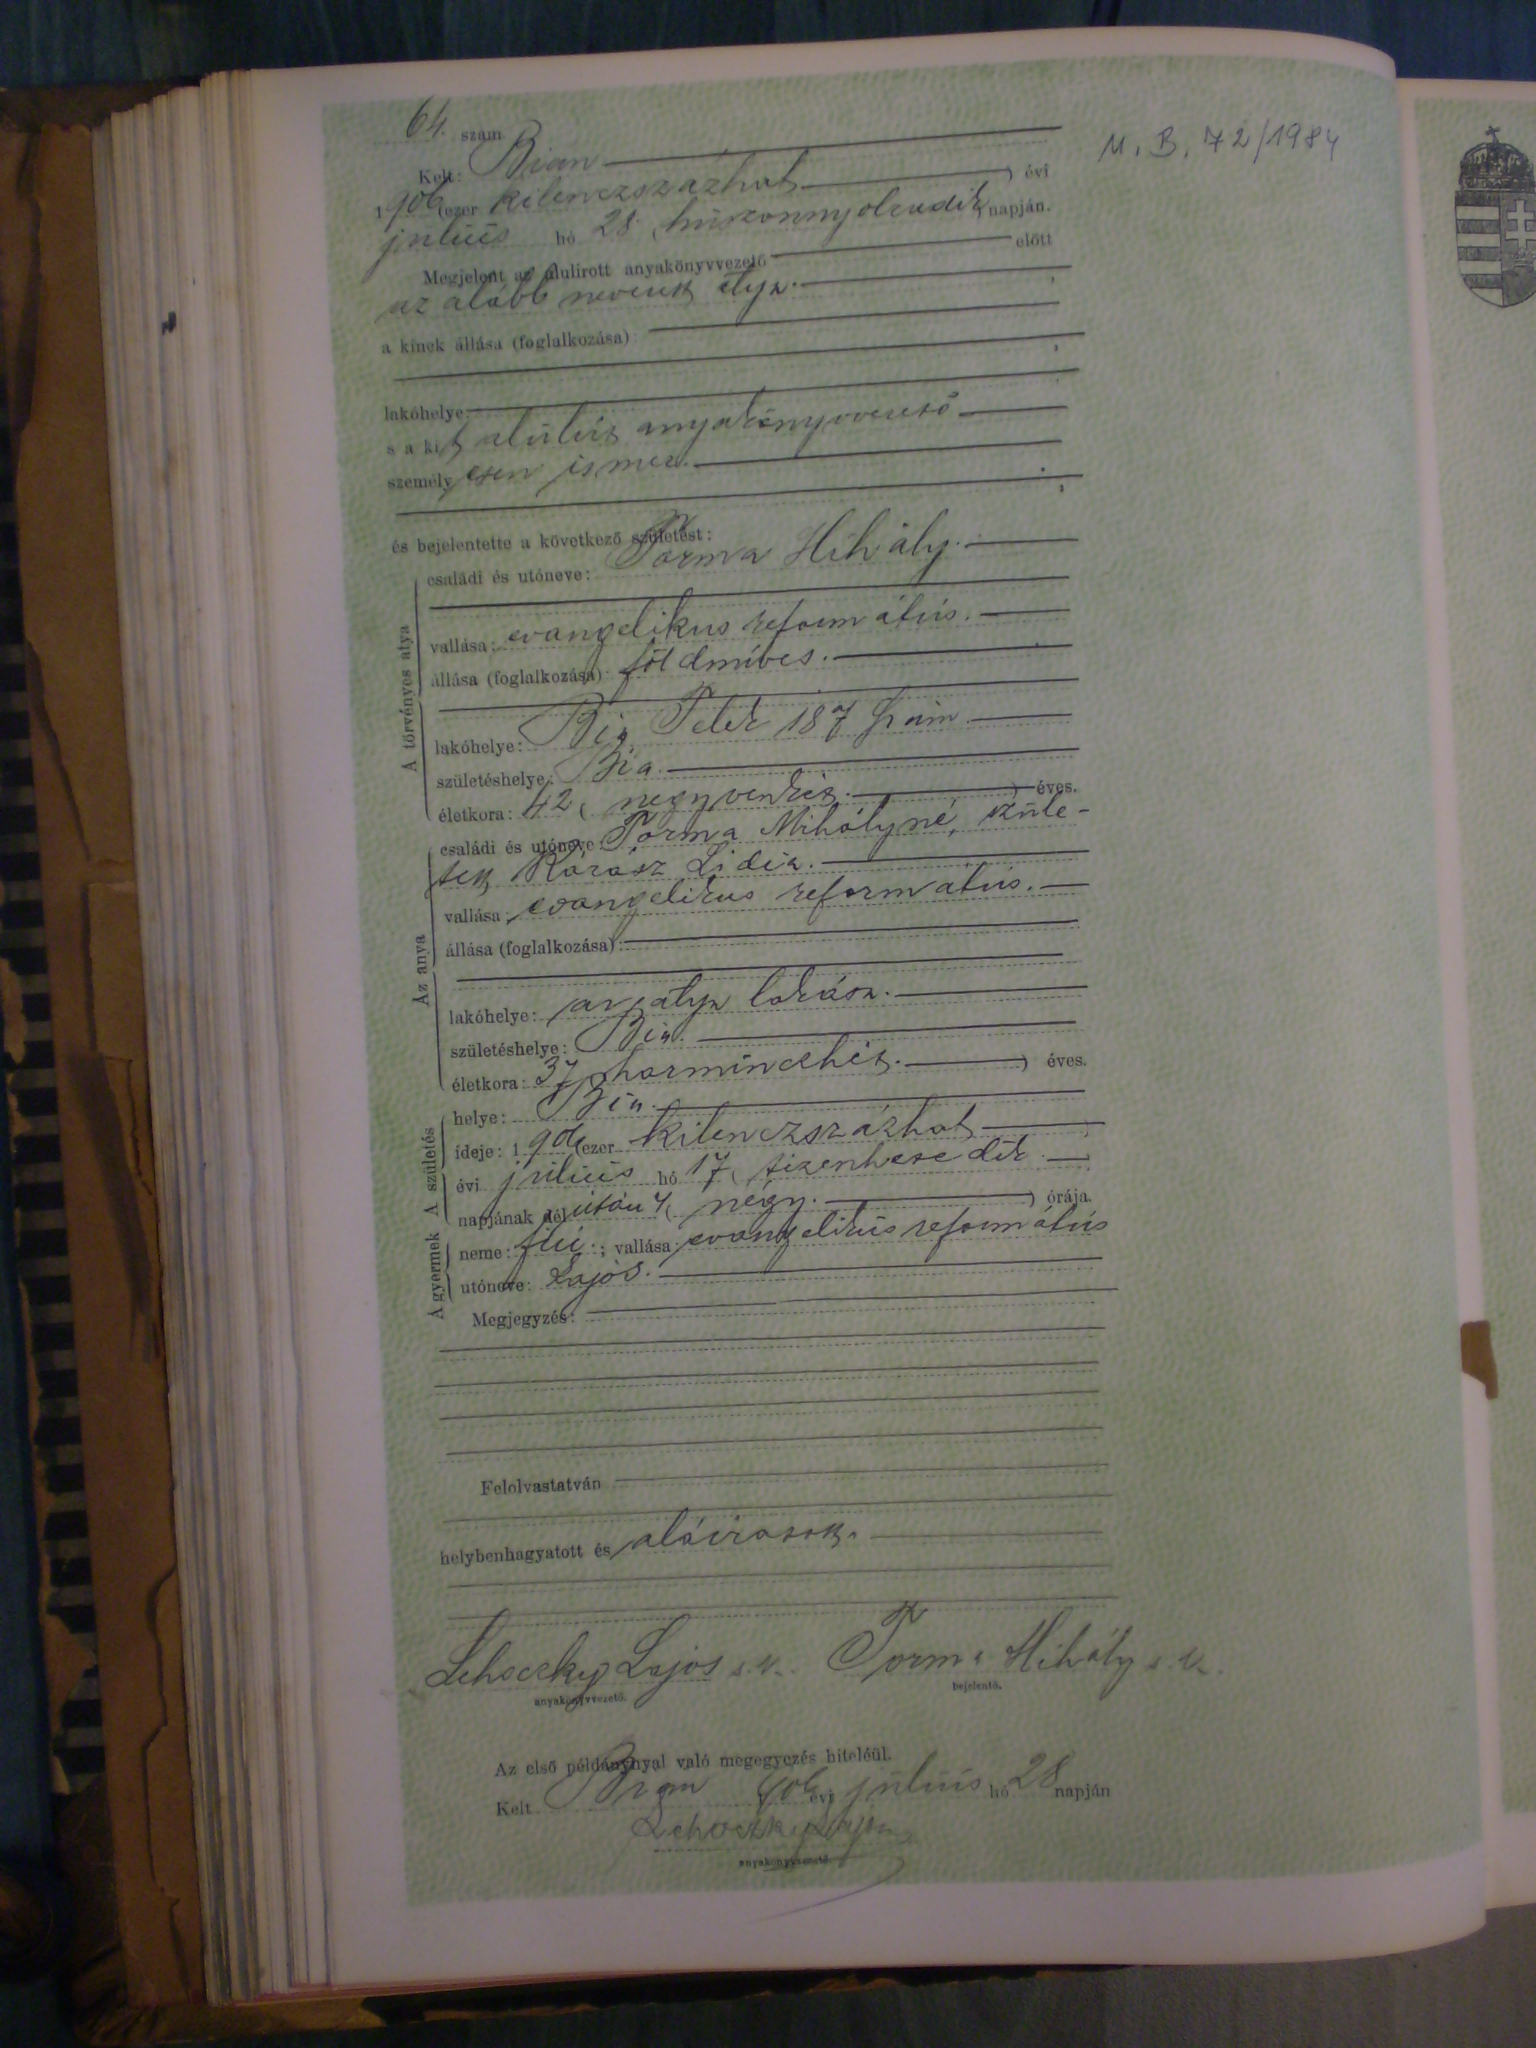 64. szám
M. B. 72/1984
Kelt: Bian
1906 (ezer kilenczszázhat) évi
július hó 28 (huszonnyolczadik) napján.
Megjelent az alulirott anyakönyvvezető előtt
az alább nevezett atya.
a kinek állása (foglalkozása):
lakóhelye:
s a kit alulírt anyakönyvvezető
személyesen ismer.
és bejelentette a következő születést:
A törvényes atya
családi és utóneve: Torma Mihály.
vallása: evangelikus református.
állása (foglalkozása): földmíves.
lakóhelye: Bia Telek 187 szám.
születéshelye: Bia.
életkora: 42 (negyvenkét.) éves.
Az anya
családi és utóneve: Torma Mihályné, szüle-
tett Kárász Lidia.
vallása: evangelikus református.
állása (foglalkozása):
lakóhelye: az atya lakása.
születéshelye: Bia.
életkora: 37 (harminczhét.) éves.
A születés
helye: Bia.
ideje: 1906 (ezer kilenczszázhat)
évi július hó 17 (tizenhetedik.)
napjának délután 4 (négy.) órája.
A gyermek
neme: fiú.; vallása: evangelikus református
utóneve: Lajos.
Megjegyzés:
Felolvastatván
helybenhagyatott és aláíratott.
Lehoczky Lajos s. k. Torma Mihály s. k.
anyakönyvvezető. bejelentő.
Az első példánynyal való megegyezés hiteléül.
Kelt Bian 906 évi július hó 28 napján
Lehoczky Lajos
anyakönyvvezető.